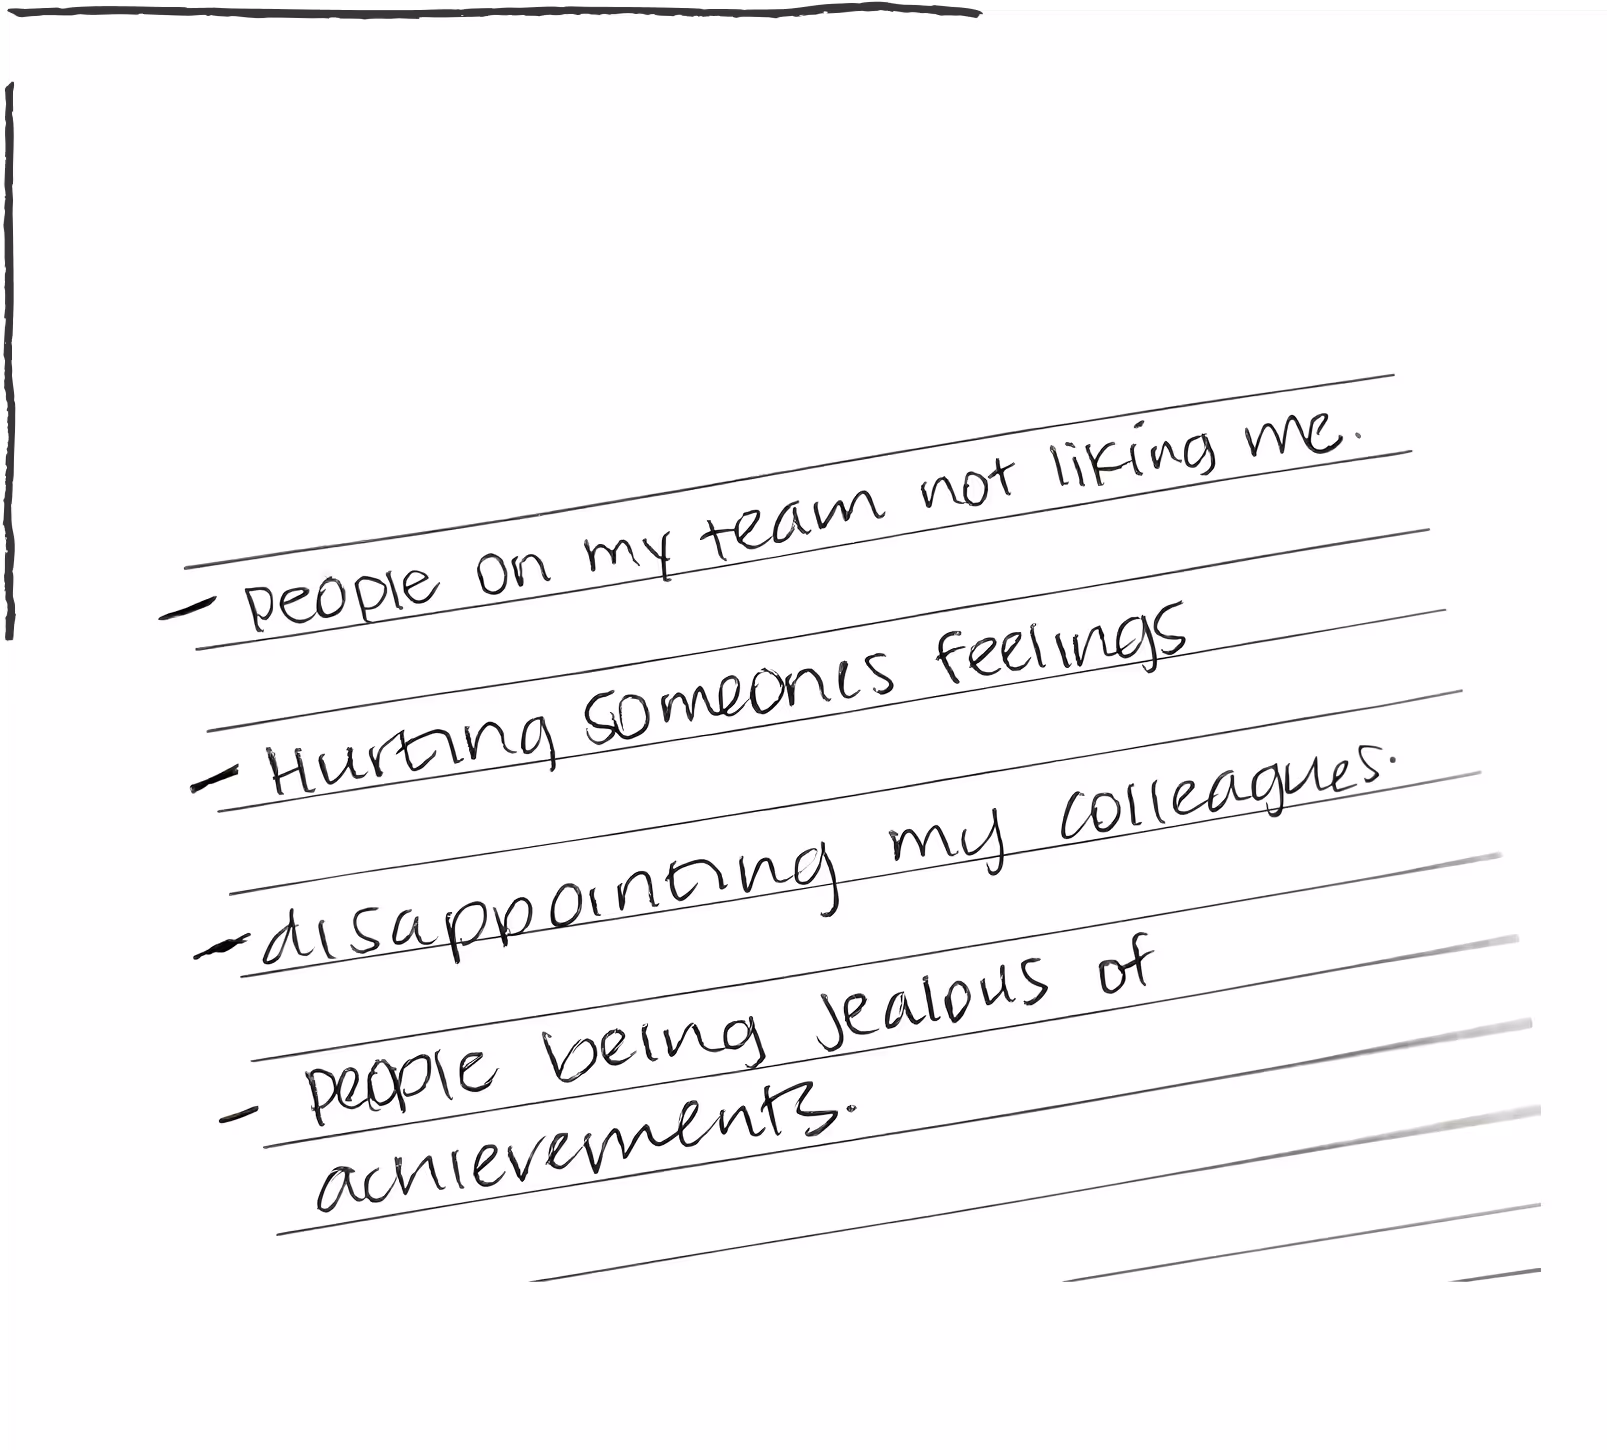 - people on my team not liking me.
- Hurting someones feelings
- disappointing my colleagues.
- people being jealous of
achievements.